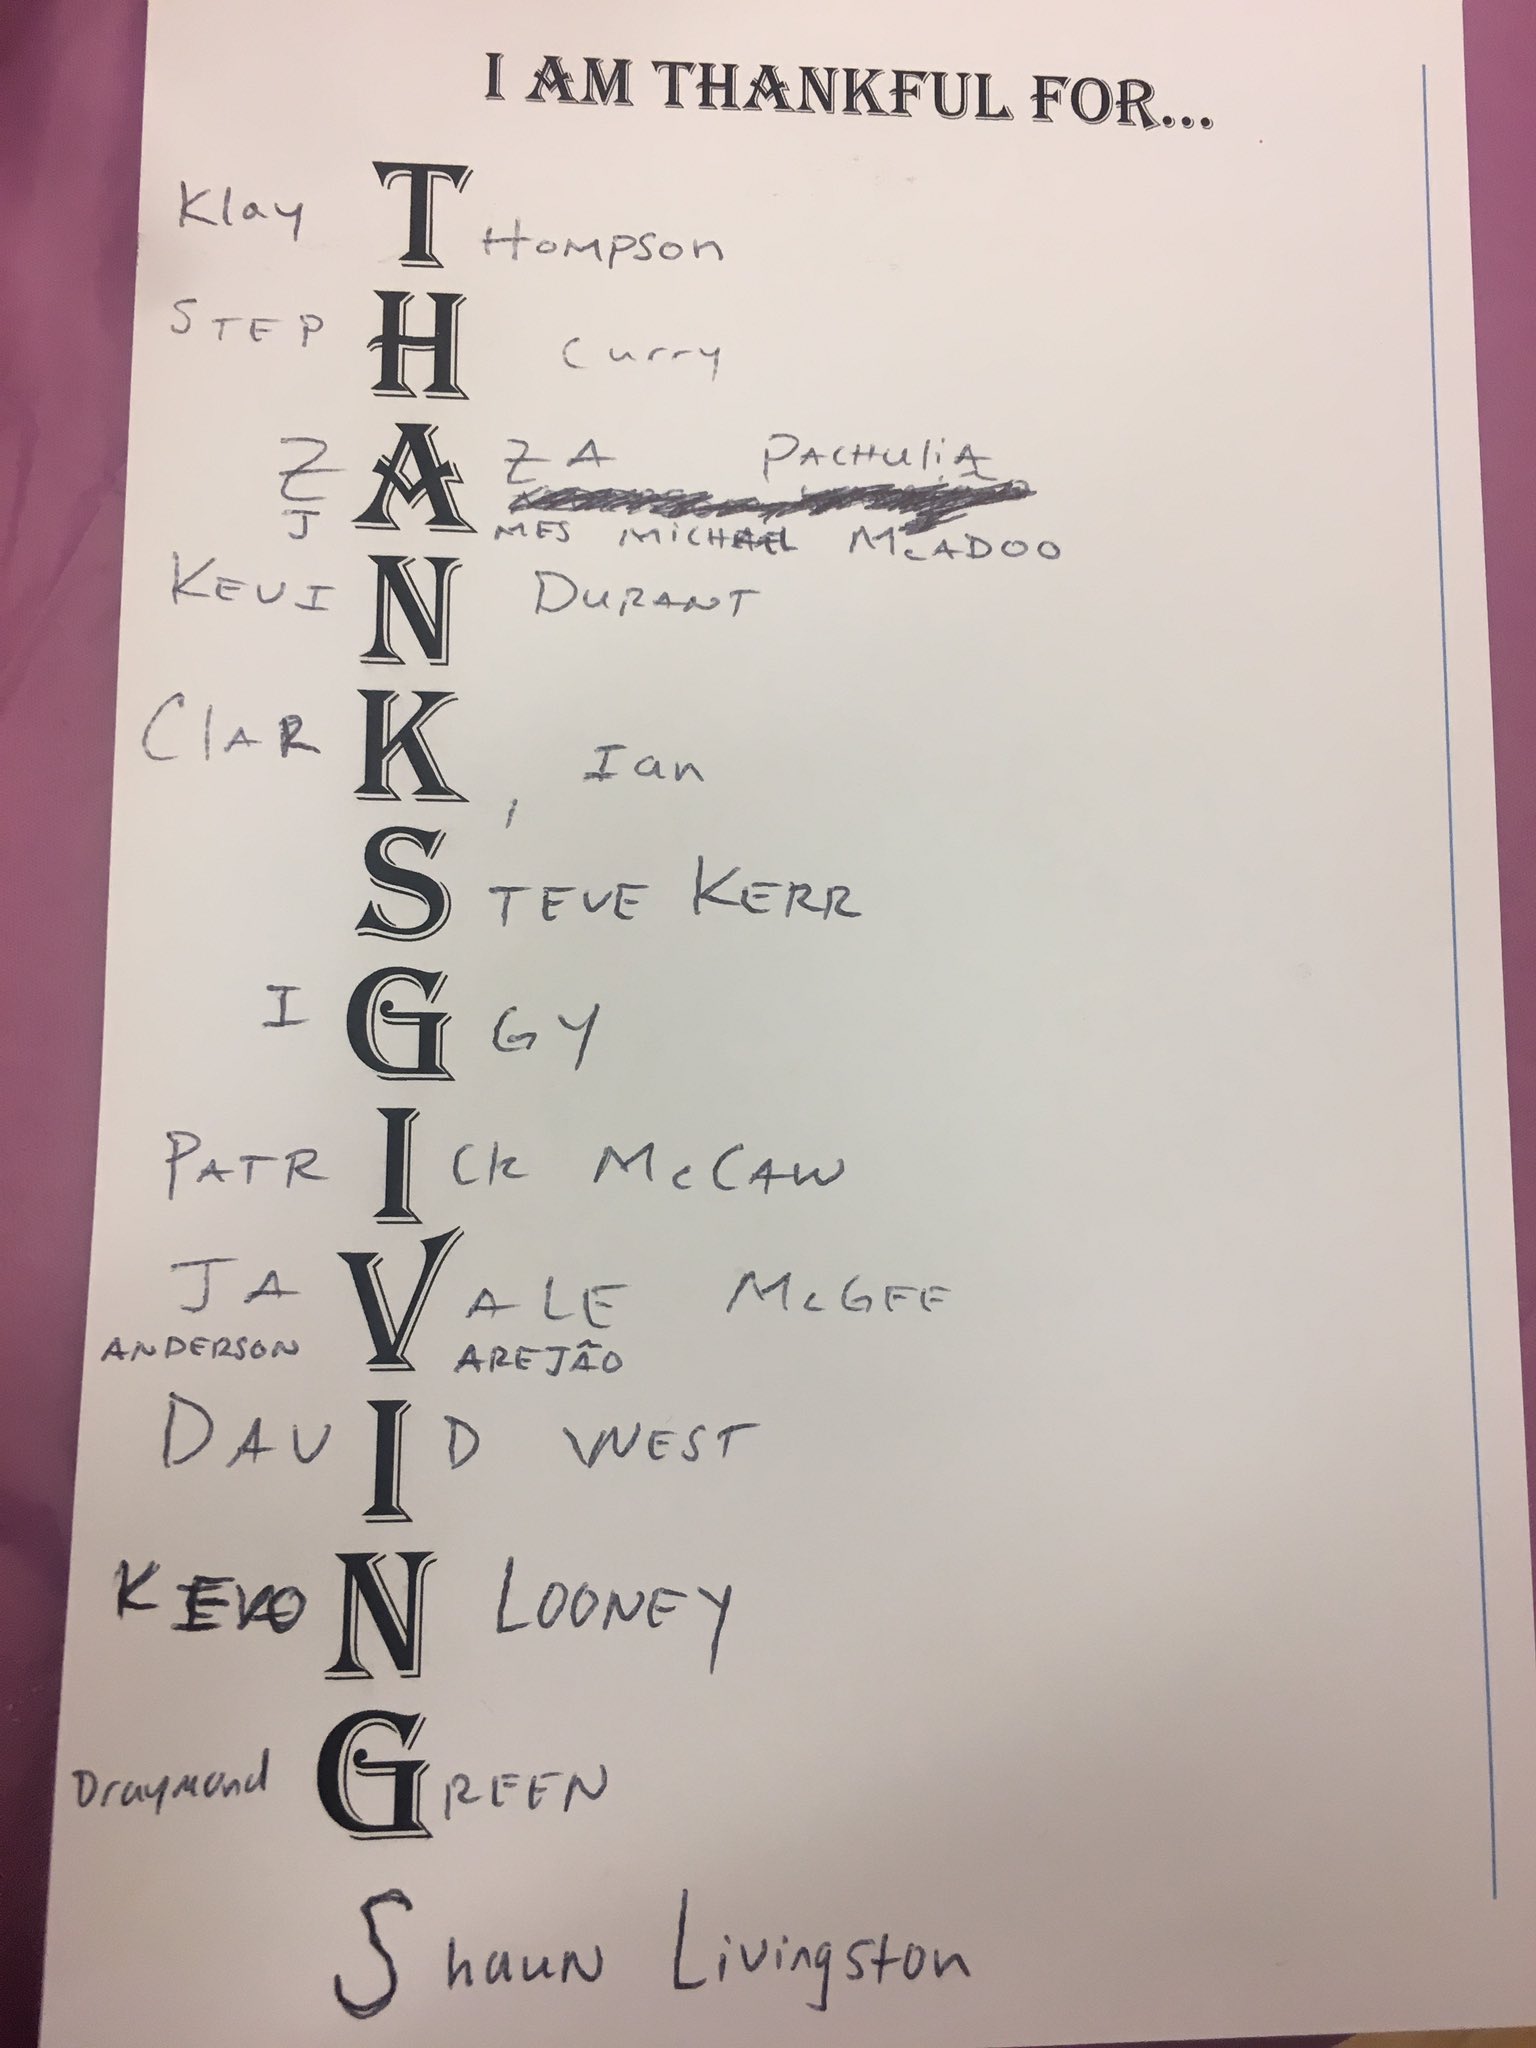 I AM THANKFUL FOR...
Klay THompson
STEPH Curry
ZAZA PACHULIA
JAMES MICHAEL McADOO
KEVIN DURANT
ClARK, Ian
STEVE KERR
IGGY
PATRICK McCAW
JAVALE McGEE
ANDERSON VAREJÃO
DAVID WEST
KEVON LOONEY
Draymond GREEN
Shaun Livingston